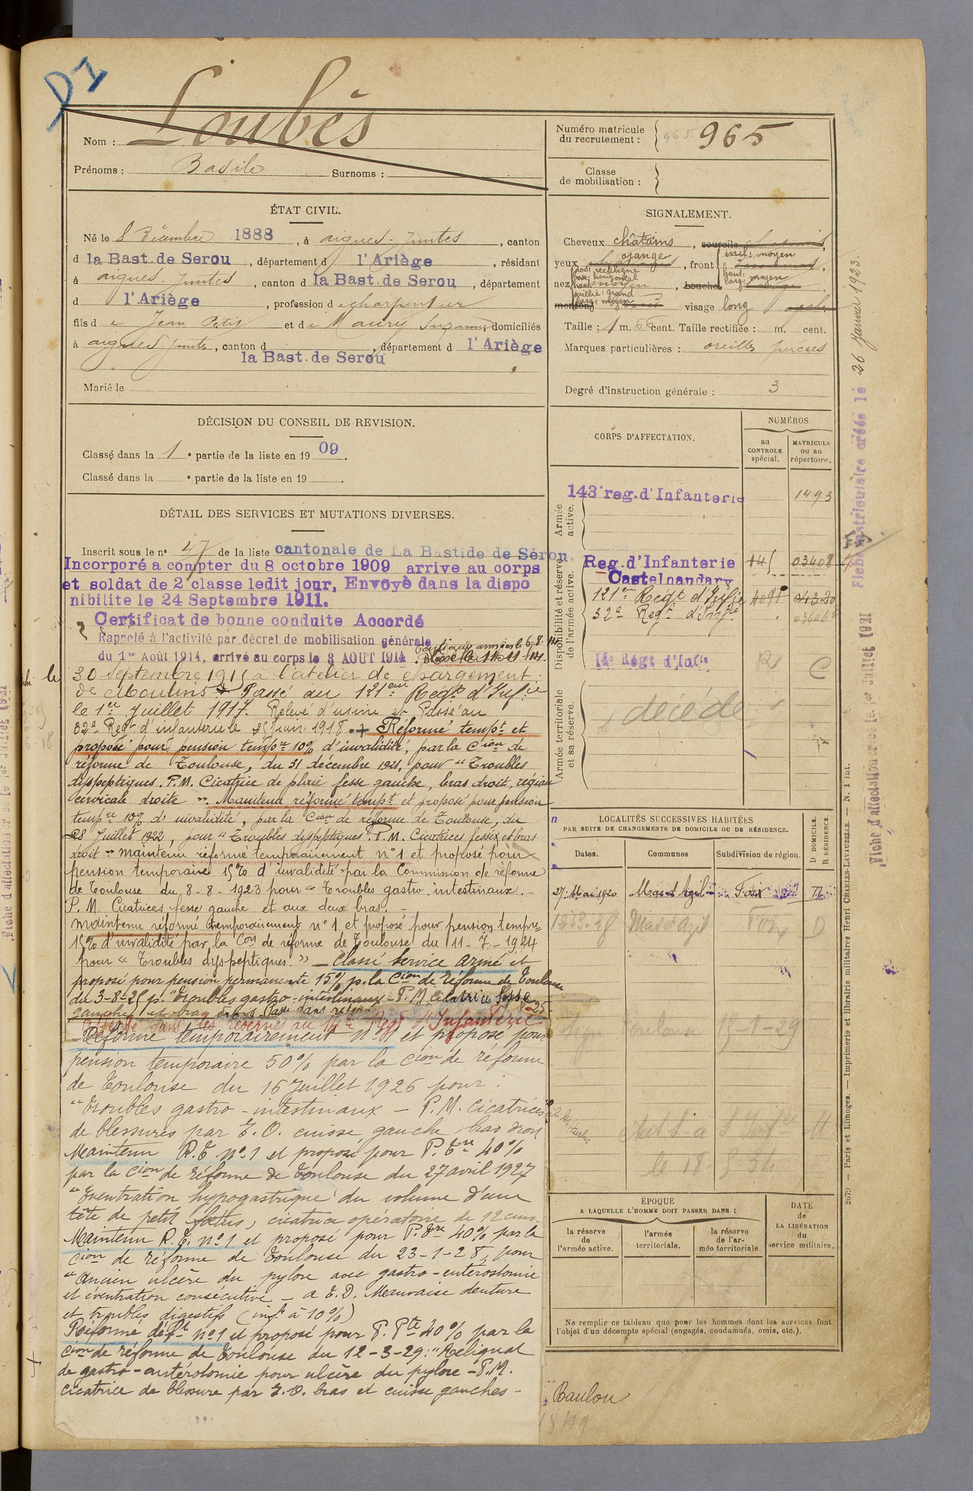 D1
Nom : Loubès
Prénoms : Basile Surnoms :
Numéro matricule du recrutement : 965 965
Classe de mobilisation :
ÉTAT CIVIL.
Né le 8 Décembre 1888, à aigues-juntes, canton
d la Bast. de Serou, département d l'Ariège, résidant
à aigues-juntes, canton d la Bast. de Serou, département
d l'Ariège, profession de charpentier
fils de Jean Petit et de Maury Suzanne, domiciliés
à aigues juntes, canton d la Bast. de Serou, département d l'Ariège
Marié le
SIGNALEMENT.
Cheveux châtains, sourcils
yeux orange, front
nez, bouche
menton visage long
Taille : 1 m. 66 cent. Taille rectifiée : m. cent.
Marques particulières : oreilles percées
Degré d'instruction générale : 3
DÉCISION DU CONSEIL DE REVISION.
Classé dans la 1e partie de la liste en 1909.
Classé dans la e partie de la liste en 19
DÉTAIL DES SERVICES ET MUTATIONS DIVERSES.
Inscrit sous le n° 47 de la liste cantonale de La Bastide de Sérou.
Incorporé a compter du 8 octobre 1909 arrive au corps
et soldat de 2 classe ledit jour, Envoyè dans la dispo
nibilite le 24 Septembre 1911.
Certificat de bonne conduite Accordé
Rappelé à l'activité par décret de mobilisation générale
du 1er Août 1914, arrivé au corps le 8 AOUT 1914
30 septembre 1915 à l'atelier de chargement
de Moulins. Passé au 121eme Regt d'Infie
le 1er Juillet 1917. Relevé d'usine et Passé au
32e Regt d'infanterie le Juin 1918. Réformé tempt et
proposé pour pension tempre 10% d'invalidité, par la Cion de
réforme de Toulouse, du 31 décembre 1921, pour "Troubles
dyspeptiques. P.M. Cicatrice de plaie fesse gauche, bras droit, région
cervicale droite". Maintenu réformé tempt et proposé pour pension
tempre 10% d'invalidité, par la Cion de réforme de Toulouse, du
28 Juillet 1922, pour "Troubles dyspeptiques. P.M. Cicatrices fesse et bras
droit" maintenu réformé temporairement n°1 et proposé pour
pension temporaire 15% d'invalidité par la Commission de réforme
de Toulouse du 8-8-1923 pour "Troubles gastro-intestinaux.
P.M. Cicatrices fesse gauche et aux deux bras.
maintenu réformé temporairement n°1 et proposé pour pension tempre
15% d'invalidité par la Con de réforme de Toulouse du 11-7-1924
pour "Troubles dyspeptiques." Classé Service armé et
proposé pour pension permanente 15% p. la Cion de réforme de Toulouse
du 3-8-25 p. "troubles gastro-intestinaux - P.M. Cicatrice fesse
gauche et bras
dans les réserves au 14e Regt d'Infanterie
Réformé temporairement n°1 et proposé pour
pension temporaire 50% par la Cion de réforme
de Toulouse du 16 Juillet 1926 pour :
"Troubles gastro-intestinaux - P.M. Cicatrices
de blessures par E.O. cuisse gauche bras droit
Maintenu R.T. n°1 et proposé pour P. Tre 40%
par la Cion de réforme de Toulouse du 27 avril 1927
"Eventration hypogastrique du volume d'une
tête de petit fœtus, cicatrice opératoire de 12 cm.
Maintenu R.T. n°1 et proposé pour P. Tre 40% par la
Cion de réforme de Toulouse du 23-1-28, pour
"Ancien ulcère du pylore avec gastro-entérostomie
et éventration consécutive - a E.D. Mauvaise denture
et troubles digestifs (inft à 10%)
Réformé déft n°1 et proposé pour P. Pte 40% par la
Cion de réforme de Toulouse du 12-3-29 : "Reliquat
de gastro-entérotomie pour ulcère du pylore - P.M.
cicatrice de blessure par E.O. bras et cuisse gauches -
CORPS D'AFFECTATION.
NUMÉROS
au CONTROLE spécial.
MATRICULE ou au répertoire.
Armée active.
143e reg. d'Infanterie 1493
Disponibilité et réserve de l'armée active.
Reg. d'Infanterie 145 03408
Castelnaudary
121eme Regt d'Infie
32e Regt d'Infie
14e Régt d'Infie R C
Armée territoriale et sa réserve.
décédé
LOCALITÉS SUCCESSIVES HABITÉES
PAR SUITE DE CHANGEMENTS DE DOMICILE OU DE RÉSIDENCE.
D DOMICILE. R RÉSIDENCE.
Dates. Communes Subdivision de région.
27 Mai 1920 Mas d'Azil Foix
Mas d'Azil Foix D
Toulouse 11-1-29
ÉPOQUE
A LAQUELLE L'HOMME DOIT PASSER DANS :
la réserve de l'armée active.
l'armée territoriale.
la réserve de l'armée territoriale.
DATE de LA LIBÉRATION du service militaire.
Ne remplir ce tableau que pour les hommes dont les services font
l'objet d'un décompte spécial (engagés, condamnés, omis, etc.).
Baulou
1849
Fiche matriculaire créée le 26 Janvier 1923.
Fiche d'affectation créée le 1er Juillet 1921
2079 — Paris et Limoges. — Imprimerie et librairie militaires Henri Charles-Lavauzelle. — N. 1 int.